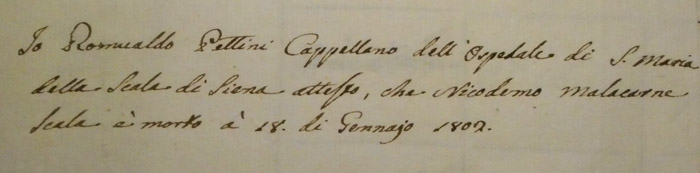 Io Romualdo Pettini Cappellano dell' Ospedale di S. Maria
della Scala di Siena attesto, che Nicodemo Malacarne
Scala è morto à 18. di Gennajo 1802.